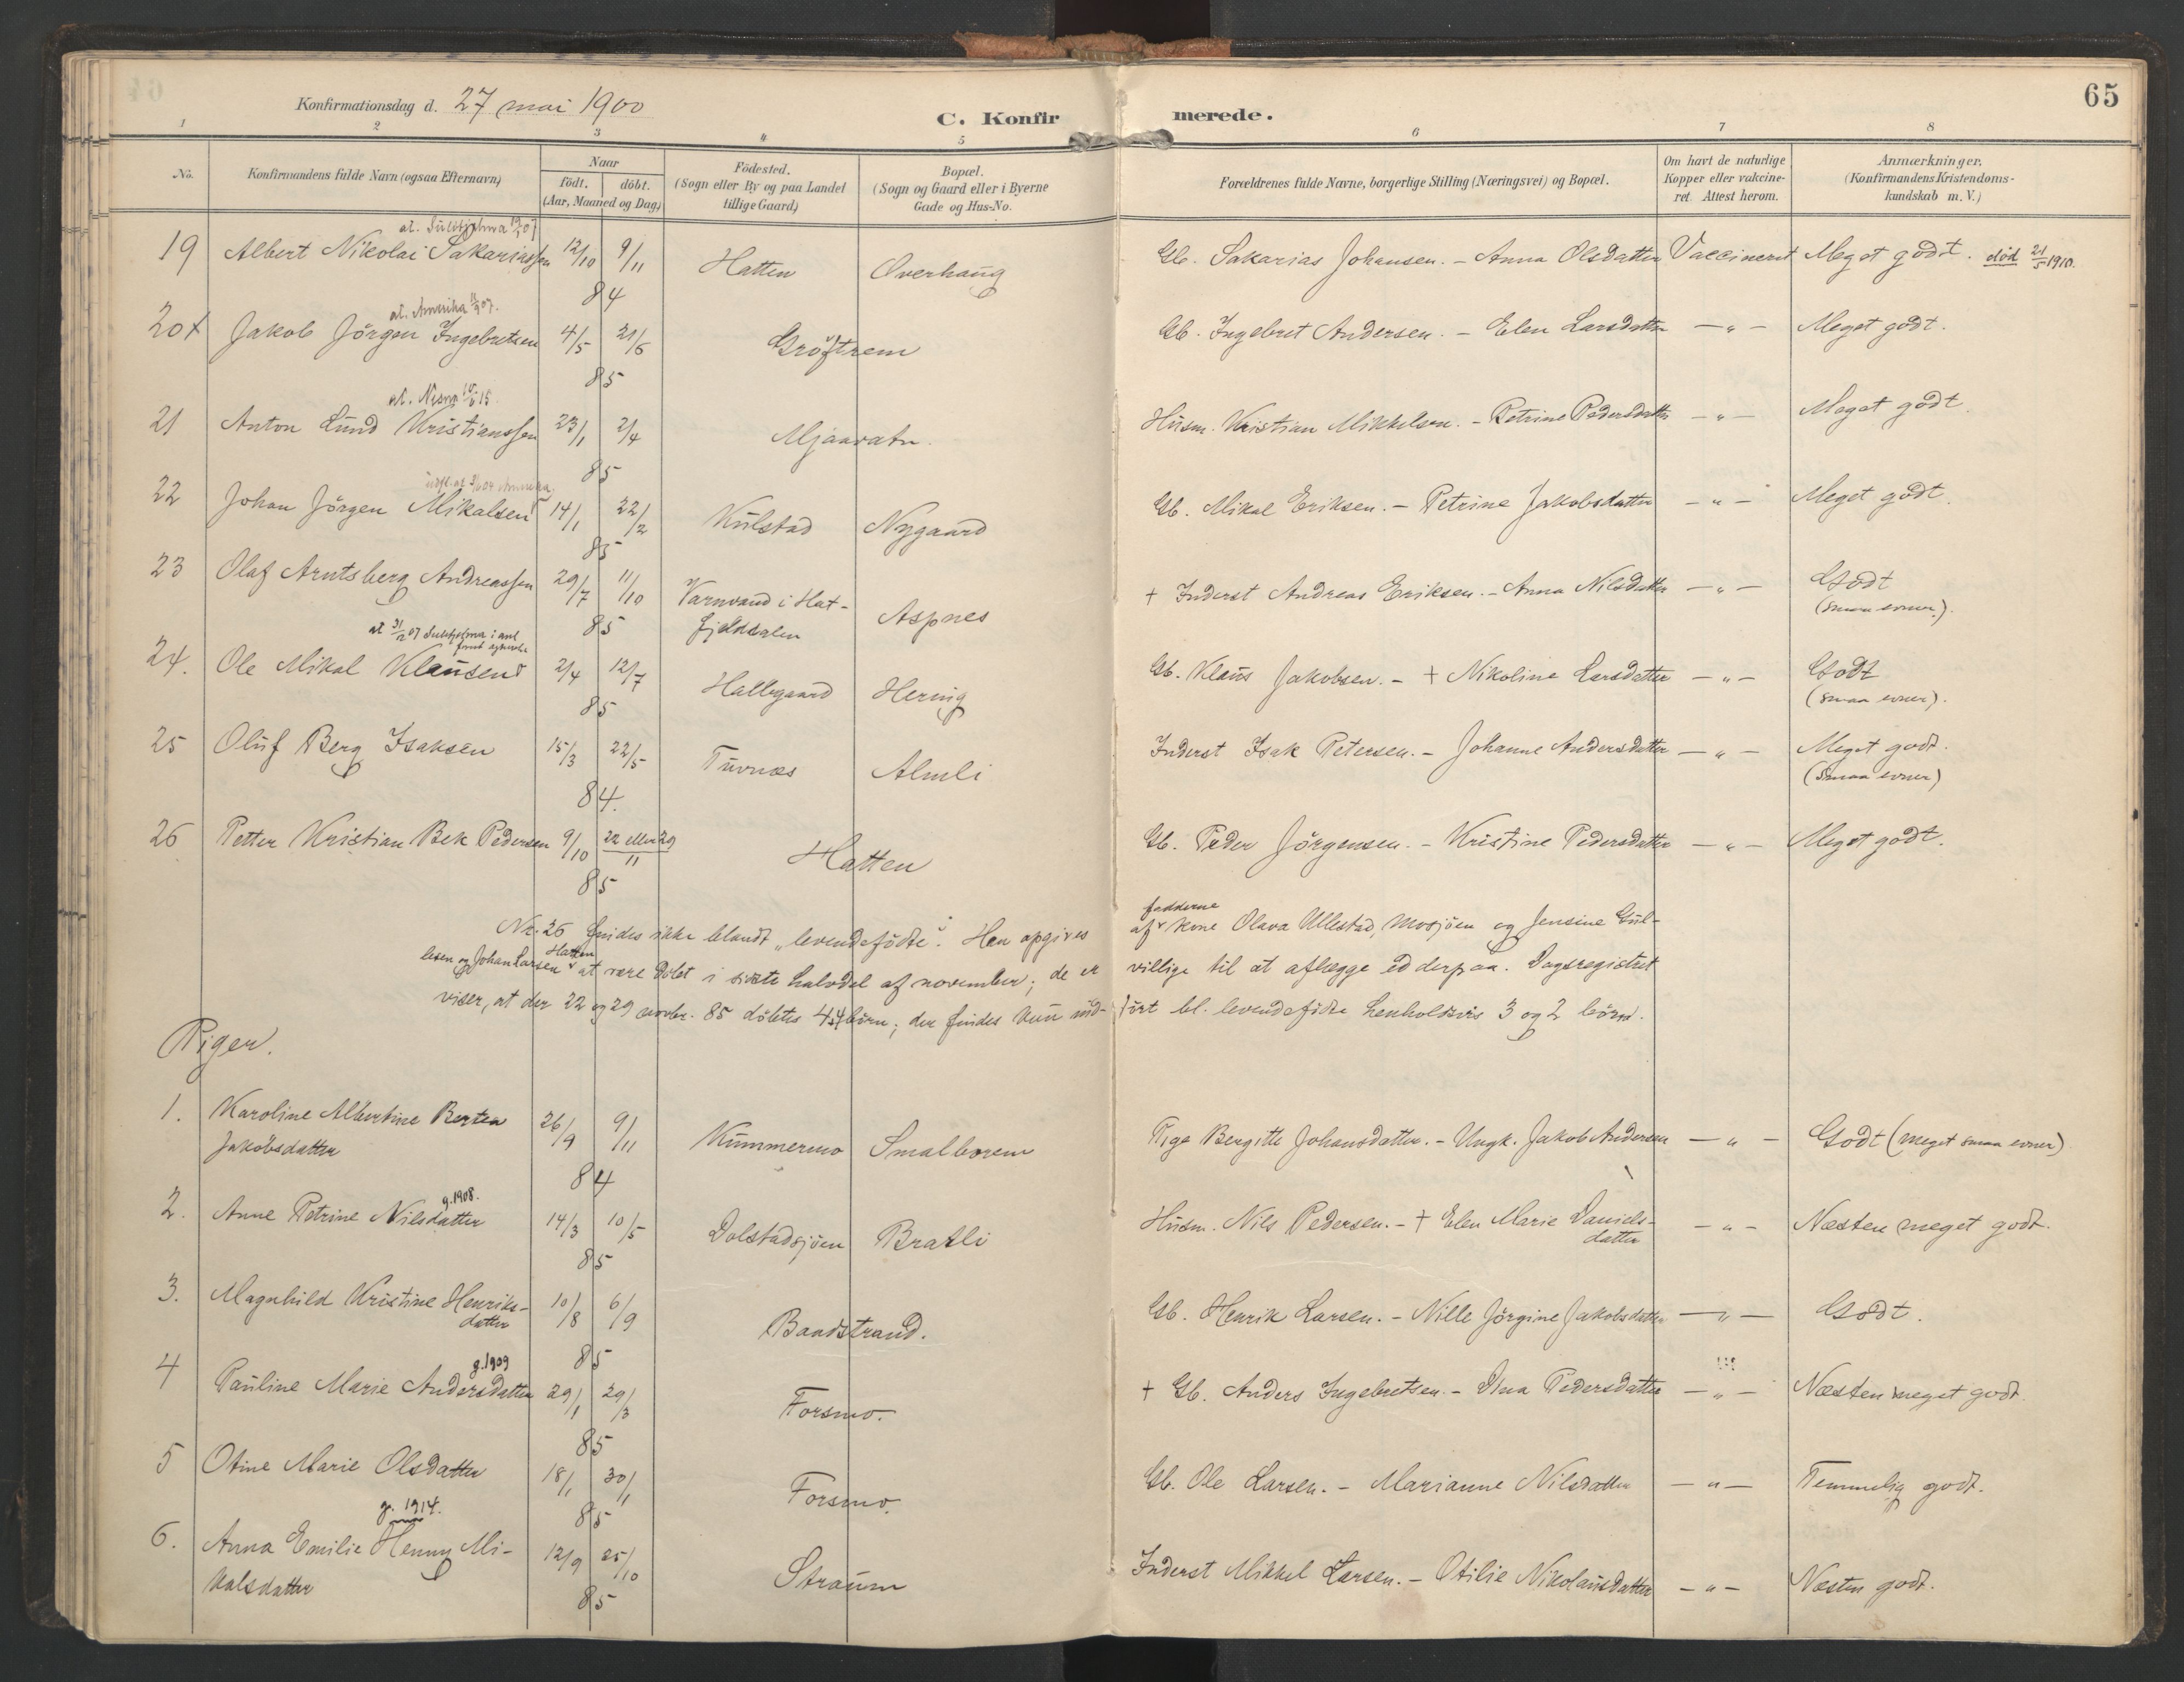 65
Konfirmationsdag d. 27 mai 1900
C. Konfirmerede.
1 2 3 4 5 6 7 8
No.
Konfirmandens fulde Navn (ogsaa Efternavn)
Naar
födt. döbt.
(Aar, Maaned og Dag)
Födested.
(Sogn eller By og paa Landet
tillige Gaard)
Bopæl.
(Sogn og Gaard eller i Byerne
Gade og Hus-No.
Forældrenes fulde Navne, borgerlige Stilling (Næringsvei) og Bopæl.
Om havt de naturlige
Kopper eller vakcine-
ret. Attest herom.
Anmærkninger.
(Konfirmandens Kristendoms-
kundskab m. V.)
at. Sulitjelma 07
19 Albert Nikolai Sakariassen 12/10 9/11 Hatten Overhaug Gb. Sakarias Johansen. - Anna Olsdatter Vaccineret Meget godt. död 21/5 1910.
84
at. Amerika 07.
20 x Jakob Jörgen Ingebretsen 4/5 21/6 Gröftrem Gb. Ingebret Andersen. - Elen Larsdatter - " - Meget godt.
85
at. Nesna 15.
21 Anton Lund Kristianssen 23/1 2/4 Mjaavatn. Husm. Kristian Mikkelsen. - Petrine Pedersdatter - " - Meget godt
85
udfl.at Amerika.
22 Johan Jörgen Mikalsen 14/1 22/2 Kulstad Nygaard Gb. Mikal Eriksen. - Petrine Jakobsdatter - " - Meget godt.
85
23 Olaf Arntsberg Andreassen 29/7 11/10 Varnvand i Hat-
fjelddalen Aspnes + Inderst Andreas Eriksen. - Anna Nilsdatter - " - Godt
(smaa evner).
85
at 31/12 07 Sulitjelma i anl
24. Ole Mikal Klausen 2/4 12/7 Hallegaard Hering Gb. Klaus Jakobsen. - + Nikoline Larsdatter - " - Godt
(smaa evner).
85
25 Oluf Berg Isaksen 15/3 22/5 Tuvnæs Almli Inderst Isak Petersen. - Johanne Andersdatter - " - Meget godt.
(smaa evner)
84.
26 Petter Kristian Bek Pedersen 9/10 22 eller 29/11 Hatten Gb. Peder Jörgensen. - Kristine Pedersdatter - " - Meget godt.
85
fadderne
Nr. 26 findes ikke blandt "levendefödte". Han opgives af Kone Olava Ullestad, Mosjöen og Jensine Gul-
Hatten
lesen og Johan Larsen at være döbt i sidste halvdel af november; de er villige til at aflægge ed derpaa. Dagsregistret
viser, at der 22 og 29 novbr. 85 döbtes 4 + 4 börn; der findes kun ind- fört bl. levendefödte henholdsvis 3 og 2 börn.
Piger.
1. Karoline Albertine Bertea 26/9 9/11 Kummermo Smalborem Pige Bergitte Johansdatter. - Ungk. Jakob Andersen - " - Godt (meget smaa evner)
Jakobsdatter
84
g. 1908.
2. Anne Petrine Nilsdatter 14/3 10/5 Dolstadsjöen Bratli Husm. Nils Pedersen. - + Elen Marie Daniels-
datter - " - Næsten meget godt.
85
3. Magnhild Kristine Henriks-
datter 10/8 6/9 Baadstrand. Gb. Henrik Larsen. - Nille Jörgine Jakobsdatter - " - Godt.
85
g. 1909
4 Pauline Marie Andersdatter 29/1 29/3 Forsmo. + Gb. Anders Ingebretsen - Pedersdatter - " - Næsten meget godt.
85
5 Otine Marie Olsdatter 18/1 30/11 Forsmo. Gb. Ole Larsen. - Marianne Nilsdatter - " - Temmelig godt.
85
g. 1914.
6. Anna Emilie Henny Mi-
kalsdatter 12/9 25/10 Straum Inderst Mikkel Larsen. - Otilie Nikolausdatter - " - Næsten godt.
85